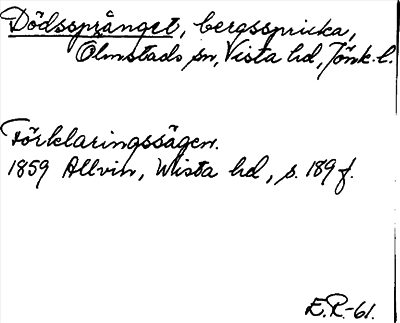 Dödssprånget, bergsspricka,
Ölmstads sn, Vista hd, Jönk. l.
Förklaringssägen.
1859 Allvin, Wista hd, s. 189 f.
E.R.-61.